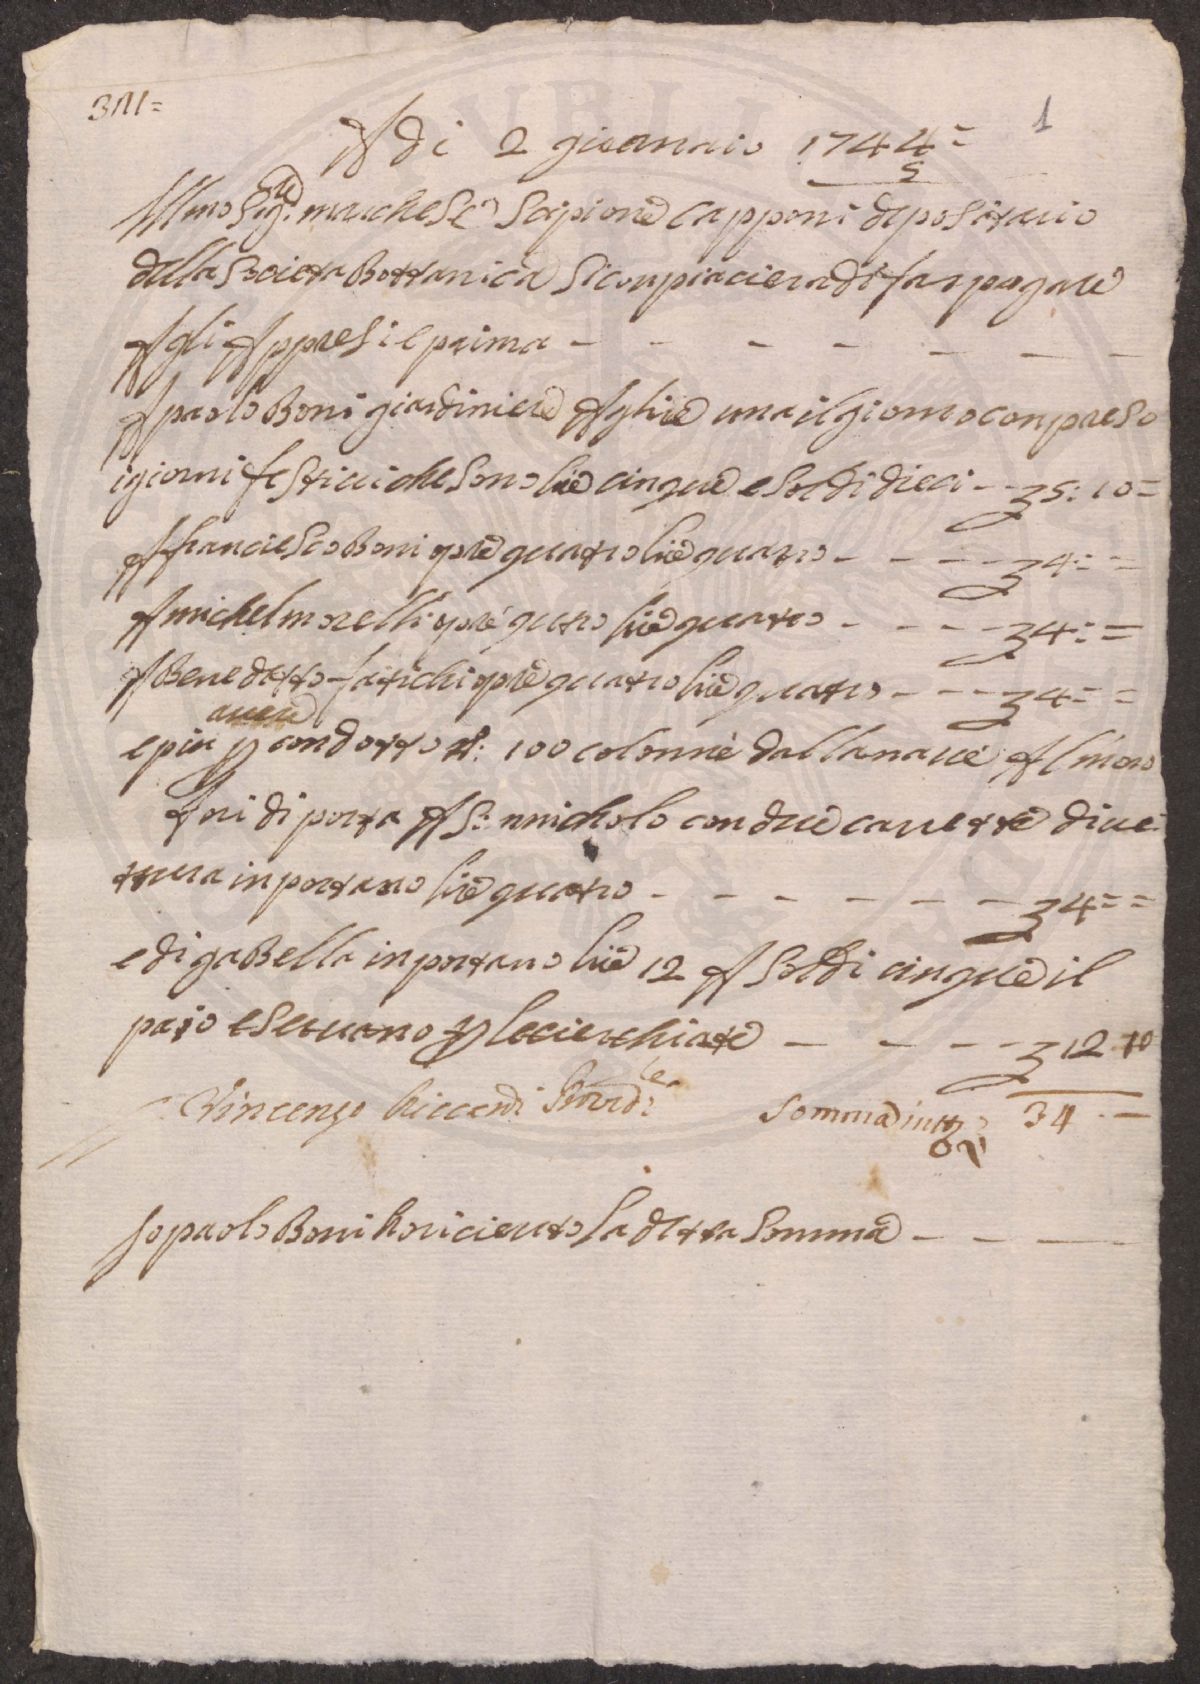 1
A di 2 giennaio 1744=
5
Ill.mo Sig.re marchese Scipione Capponi depositario
della Societa Bottanica si conpiaciera di far pagare
A gli Appresi e prima
A paolo Boni giardiniere A lire una il giorno conpreso
i giorni festivi che sono lire cinque e soldi dieci 5: 10=
A franciesco Boni opre quatro lire quatro 4: =
A michel morelli opre quatro lire quatro 4: =
A Benedetto fatichi opre quatro lire quatro 4= =
avere
e piu p condotto n: 100 colonne dalla nave Al
fori di porta A S: nnicholo con due carrette di ve
ttura inportano lire quatro 4= =
e di gaBella inportano lire 12 A Soldi cinque il
paio e servano p le cierchiate 12 10
Vincenzo Riccardi Somma in tt.o 34 -=
Io paolo Boni ho ricievuto la detta Somma